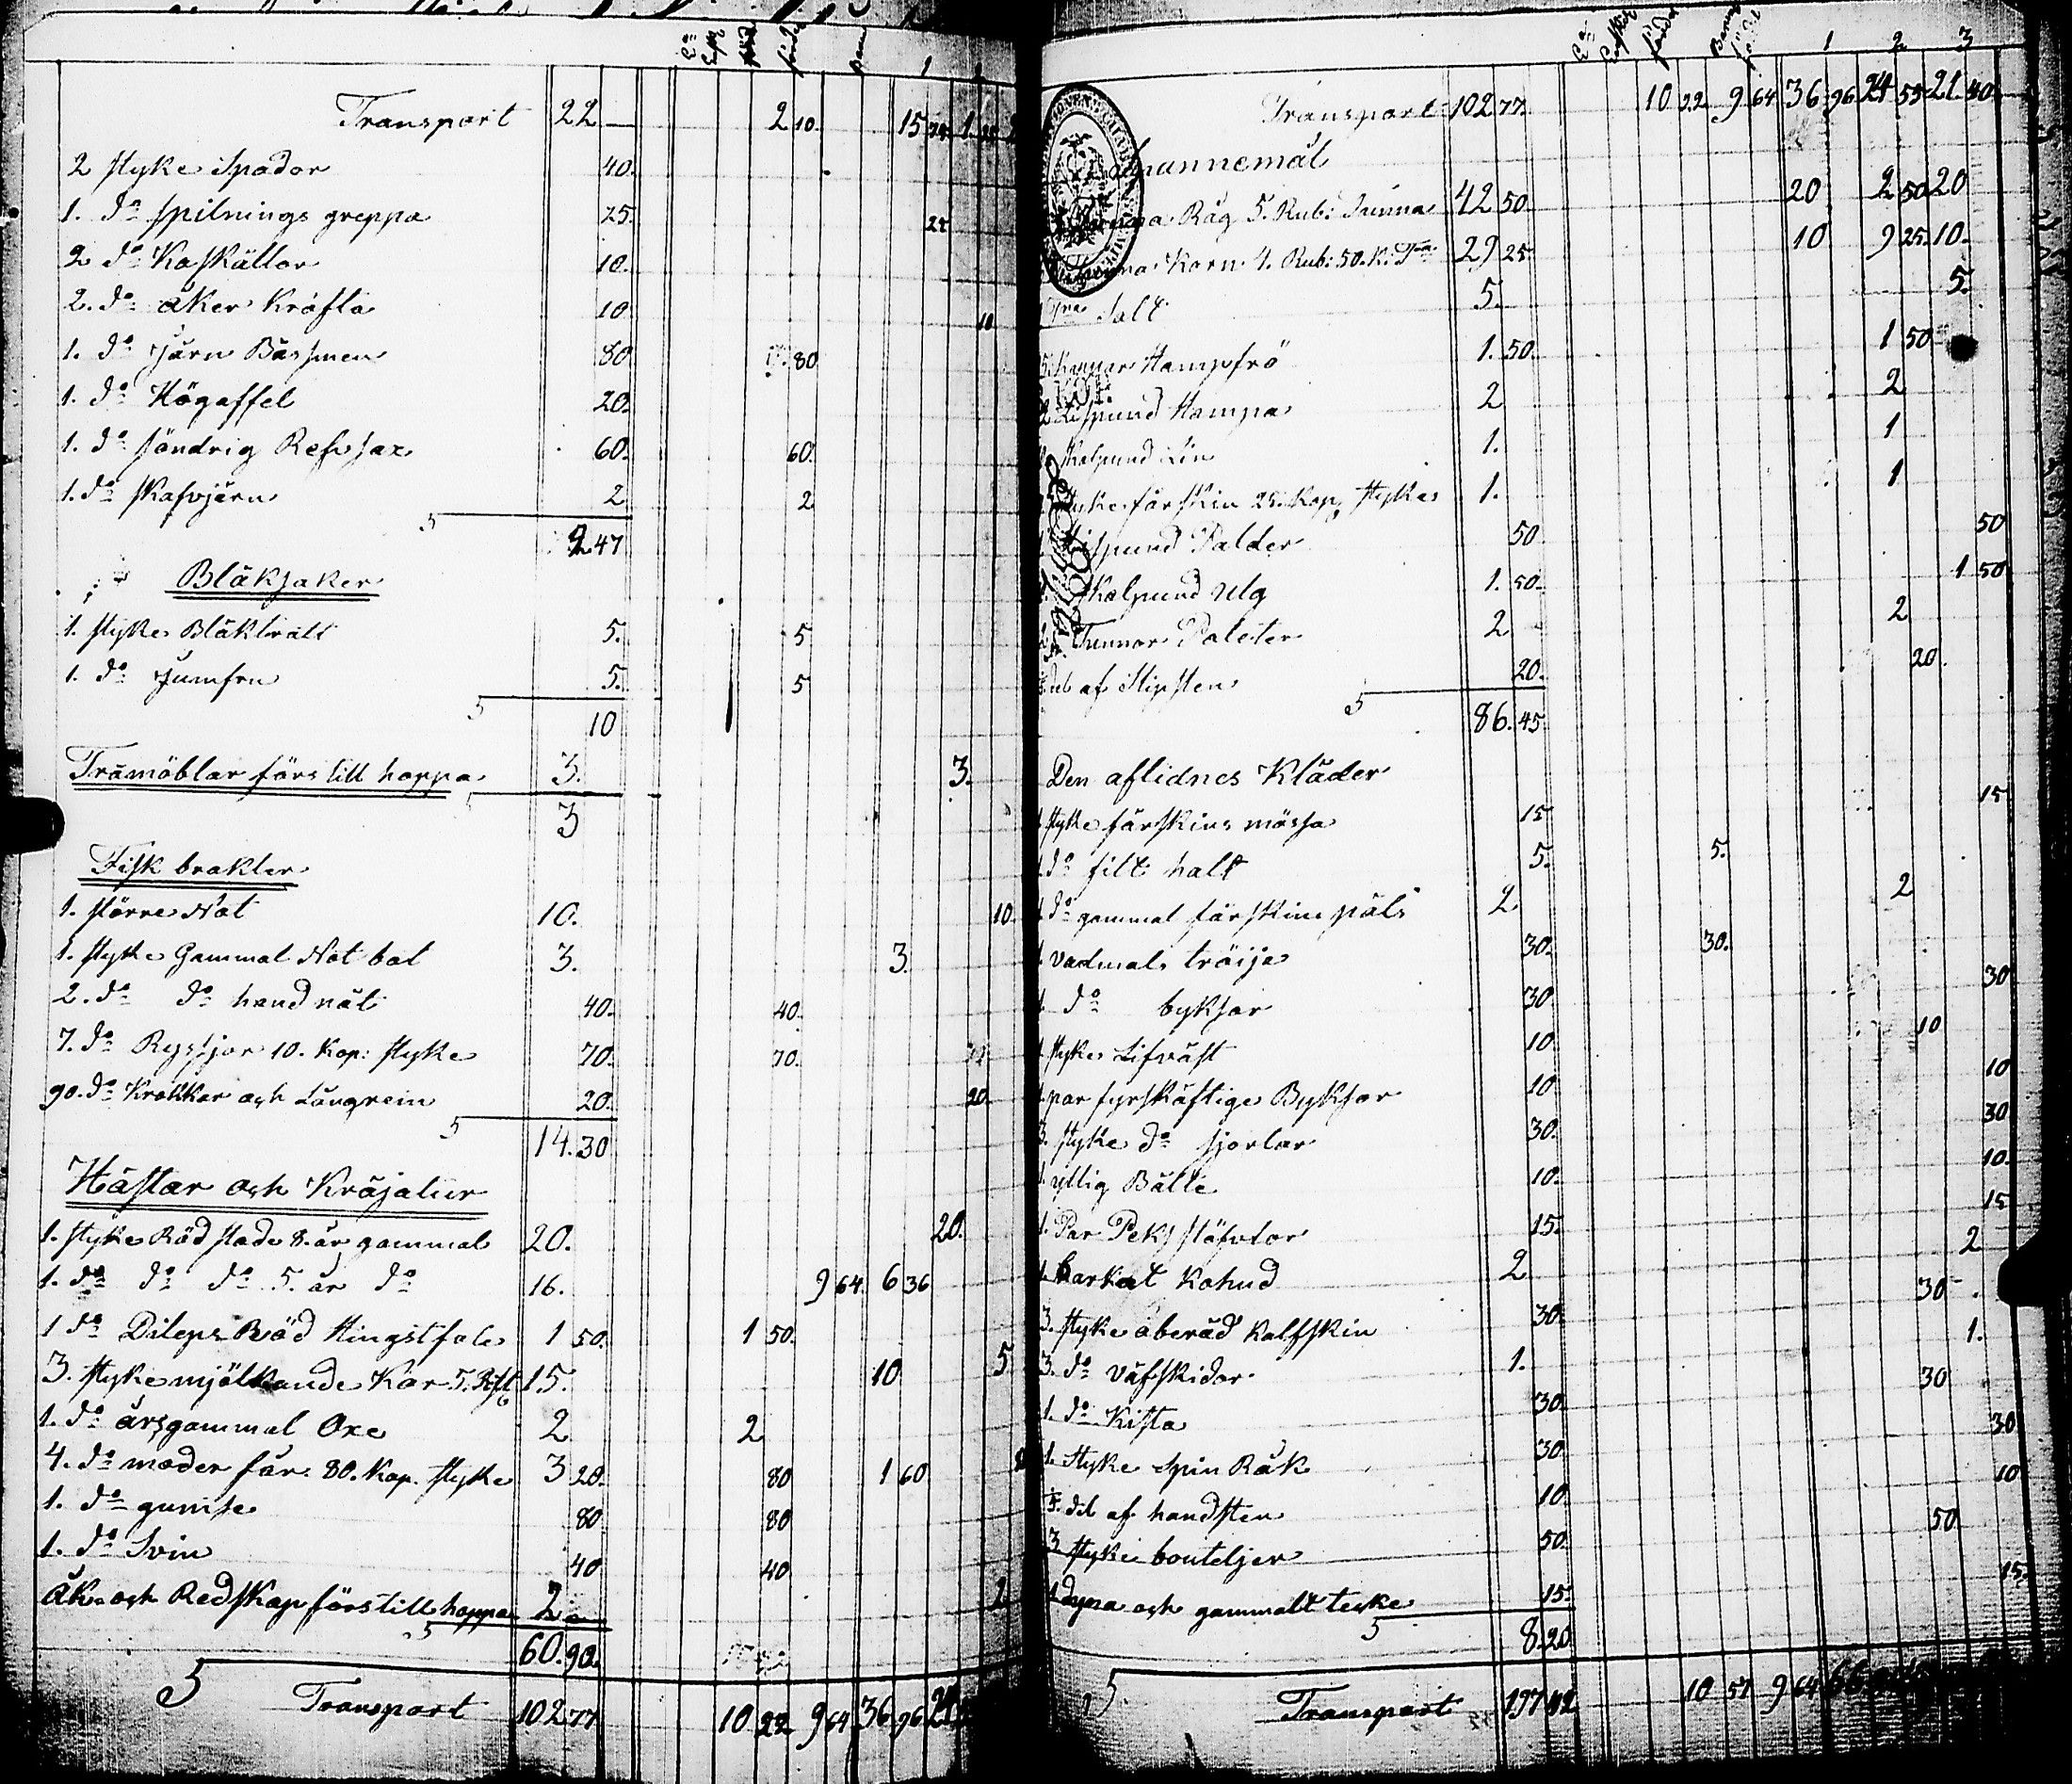 1
Transport 22 — 2 10. 15
2 styke Spador 40.
1. do spilnings greppa 25. 25
2 do Koskällor 10.
2. do åker Kråkla 10 10
1. do Järn Bässmen 80 80
1. do Högaffel 20.
1. do söndrig Refvsax 60. 60.
1. do skafvjern 2 2
S 2 47
Bläksaker
1. styke Bläktratt 5. 5
1. do Jumfru 5. 5
S 10
Trämöblar förs till hoppa 3. 3.
3
Fisk brakter
1. större Not 10. 10.
1. styke Gammal Not bot 3. 3.
2. do do handnät 40. 40.
7. do Ryssjor 10. Kop: styke 70. 70.
90. do Krokkar och Långrein 20. 20
S 14.30
Hästar och Kräjatur
1. styke Röd stade 8. år gammal 20. 20.
1. do do do 5. år do 16. 9 64 6 36
1 do Röd Hingstfole 1 50. 1 50.
3. styke mjölkande Kor 5. 15. 10 5
1. do årsgammal Oxe 2 2
4. do moder får 80. Kop. styke 3 20. 80 1 60
1. do gumse 80 80
1. do Svin 40 40
Åk och Redskap förs till hoppa 2 2
S 60.90.
S Transport 102 77 10 22 9 64 36 96
1 2 3
Transport 102 77. 10 22 9 64 36 96 24 55 21. 40
Spannemål
Råg 5. Rub: Tunna 42 50 20 2 50 20
Korn 4. Rub: 50. K: 29 25 10 9 25 10.
Salt 5. 5.
Hampfrö 1. 50. 1 50
2 Lispund Hampa 2 2
Skalpund Lin 1. 1
styke fårskin 25. Kop. styke 1. 1
Lispund Talder 50 50
Skalpund Ulg 1. 50. 1 50
Tunnor Poteter 2 2
del af Slipsten 20. 20.
S 86. 45
Den aflidnes Kläder
1 styke fårskins mössa 15 15
1 do filt hatt 5. 5.
1. do gammal fårskins päls 2 2
1 vadmals tröija 30. 30.
1. do byksor 30 30
1 styke Lifväst 10 10
1. par fyrskäftige Byksor 10 10
3. styke do sjortar 30. 30
1. yllig Bälte 10. 10.
1. Par Peks stöfvlor 15. 15
1. barkat kohud 2 2
3. styke oberäd Kalfskin 30 30
3. do väfskidor 1. 1.
1. do Kista 30 30
1. Styke Spin Råk 30 30
del af handsten 10 10
3 styke bouteljer 50 50
1 dyna och gammalt teske 15. 15.
S 8.20
S Transport 197 42 10 57 9 64 66